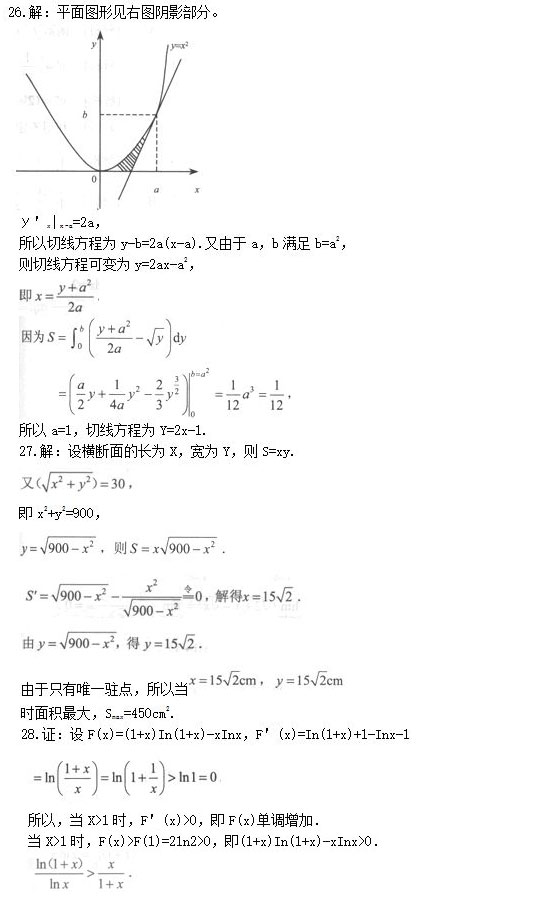 26.解：平面图形见右图阴影部分。
y
y=x²
b
0
a
x
y'ₓ|ₓ₌ₐ=2a，
所以切线方程为 y-b=2a(x-a).又由于 a，b 满足 b=a²，
则切线方程可变为 y=2ax-a²，
即 x = (y+a²)/(2a) .
因为 S = ∫₀ᵇ ( (y+a²)/(2a) - √y ) dy
= ( (a/2)y + (1/4a)y² - (2/3)y^(3/2) ) |₀^(b=a²) = (1/12)a³ = 1/12 ，
所以 a=1，切线方程为 Y=2x-1.
27.解：设横断面的长为 X，宽为 Y，则 S=xy.
又(√(x²+y²))=30，
即 x²+y²=900，
y=√(900-x²) ，则 S=x√(900-x²) .
S'=√(900-x²) - x²/√(900-x²) 令=0，解得x=15√2 .
由 y=√(900-x²)，得 y=15√2 .
由于只有唯一驻点，所以当x=15√2cm，y=15√2cm
时面积最大，Sₘₐₓ=450cm².
28.证：设 F(x)=(1+x)In(1+x)-xInx，F'(x)=In(1+x)+1-Inx-1
=ln((1+x)/x)=ln(1+1/x)>ln1=0
所以，当 X>1 时，F'(x)>0，即 F(x)单调增加.
当 X>1 时，F(x)>F(1)=2ln2>0，即(1+x)In(1+x)-xInx>0.
ln(1+x)/ln x > x/(1+x) .